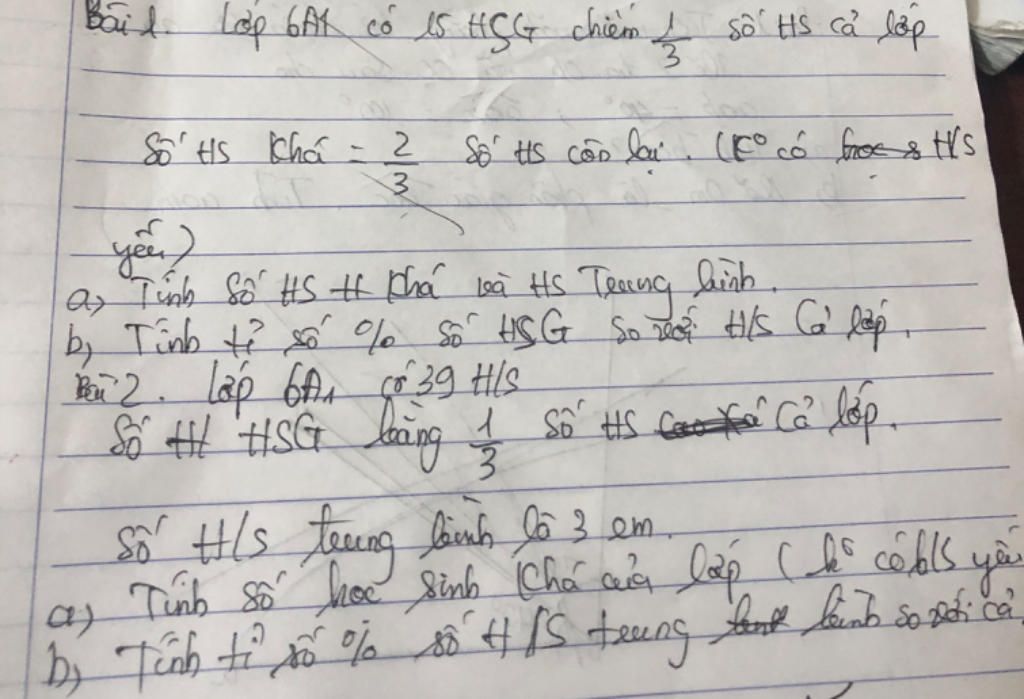 Bài 1. Lớp 6A1 có 15 HSG chiếm 1/3 số HS cả lớp
Số HS Khá = 2/3 số HS còn lại. (Ko có HS
yếu)
a, Tính số HS Khá và HS Trung bình.
b, Tính tỉ số % số HSG so với H/S Cả lớp.
Bài 2. Lớp 6A1 có 39 H/S
Số HSG bằng 1/3 số HS Cả lớp.
Số H/S trung bình là 3 em.
a) Tính số học sinh Khá của lớp (ko có h/s yếu
b, Tính tỉ số % số H/S trung bình so với cả